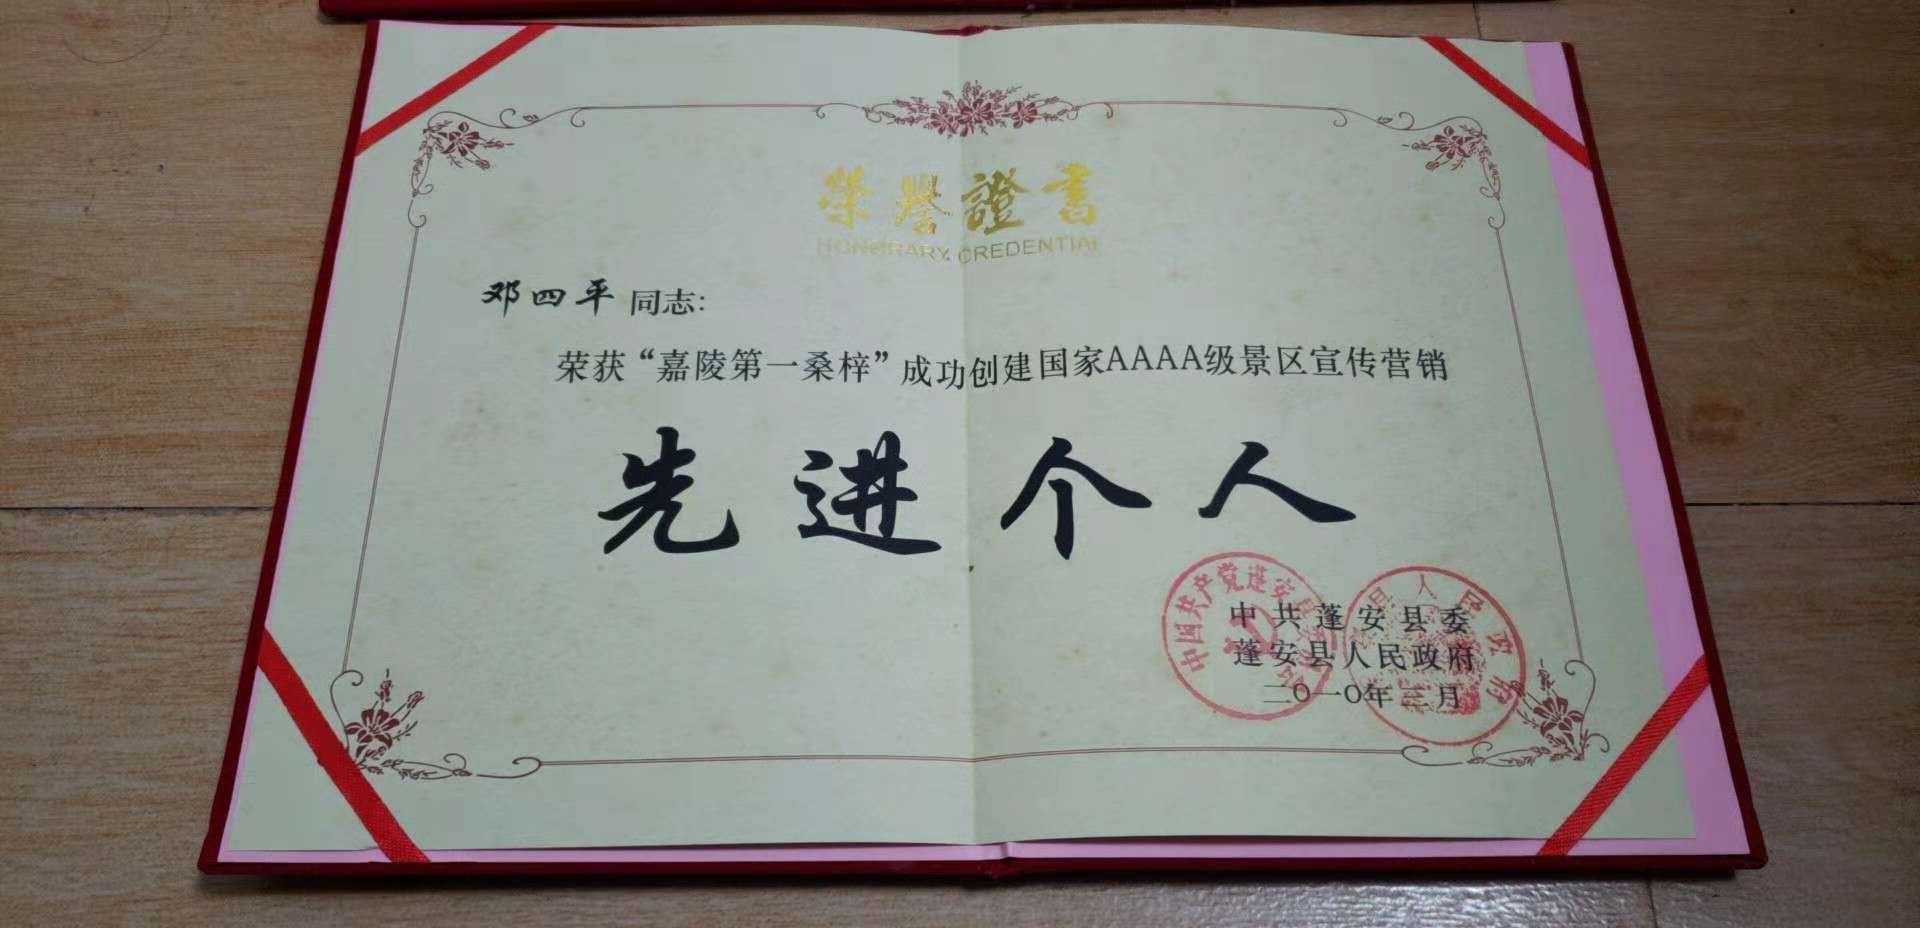 榮譽證書
HONORARY CREDENTIAL
邓四平同志:
荣获“嘉陵第一桑梓”成功创建国家AAAA级景区宣传营销
先进个人
中共蓬安县委
蓬安县人民政府
二〇一〇年三月
中国共产党蓬安县
县人民政府